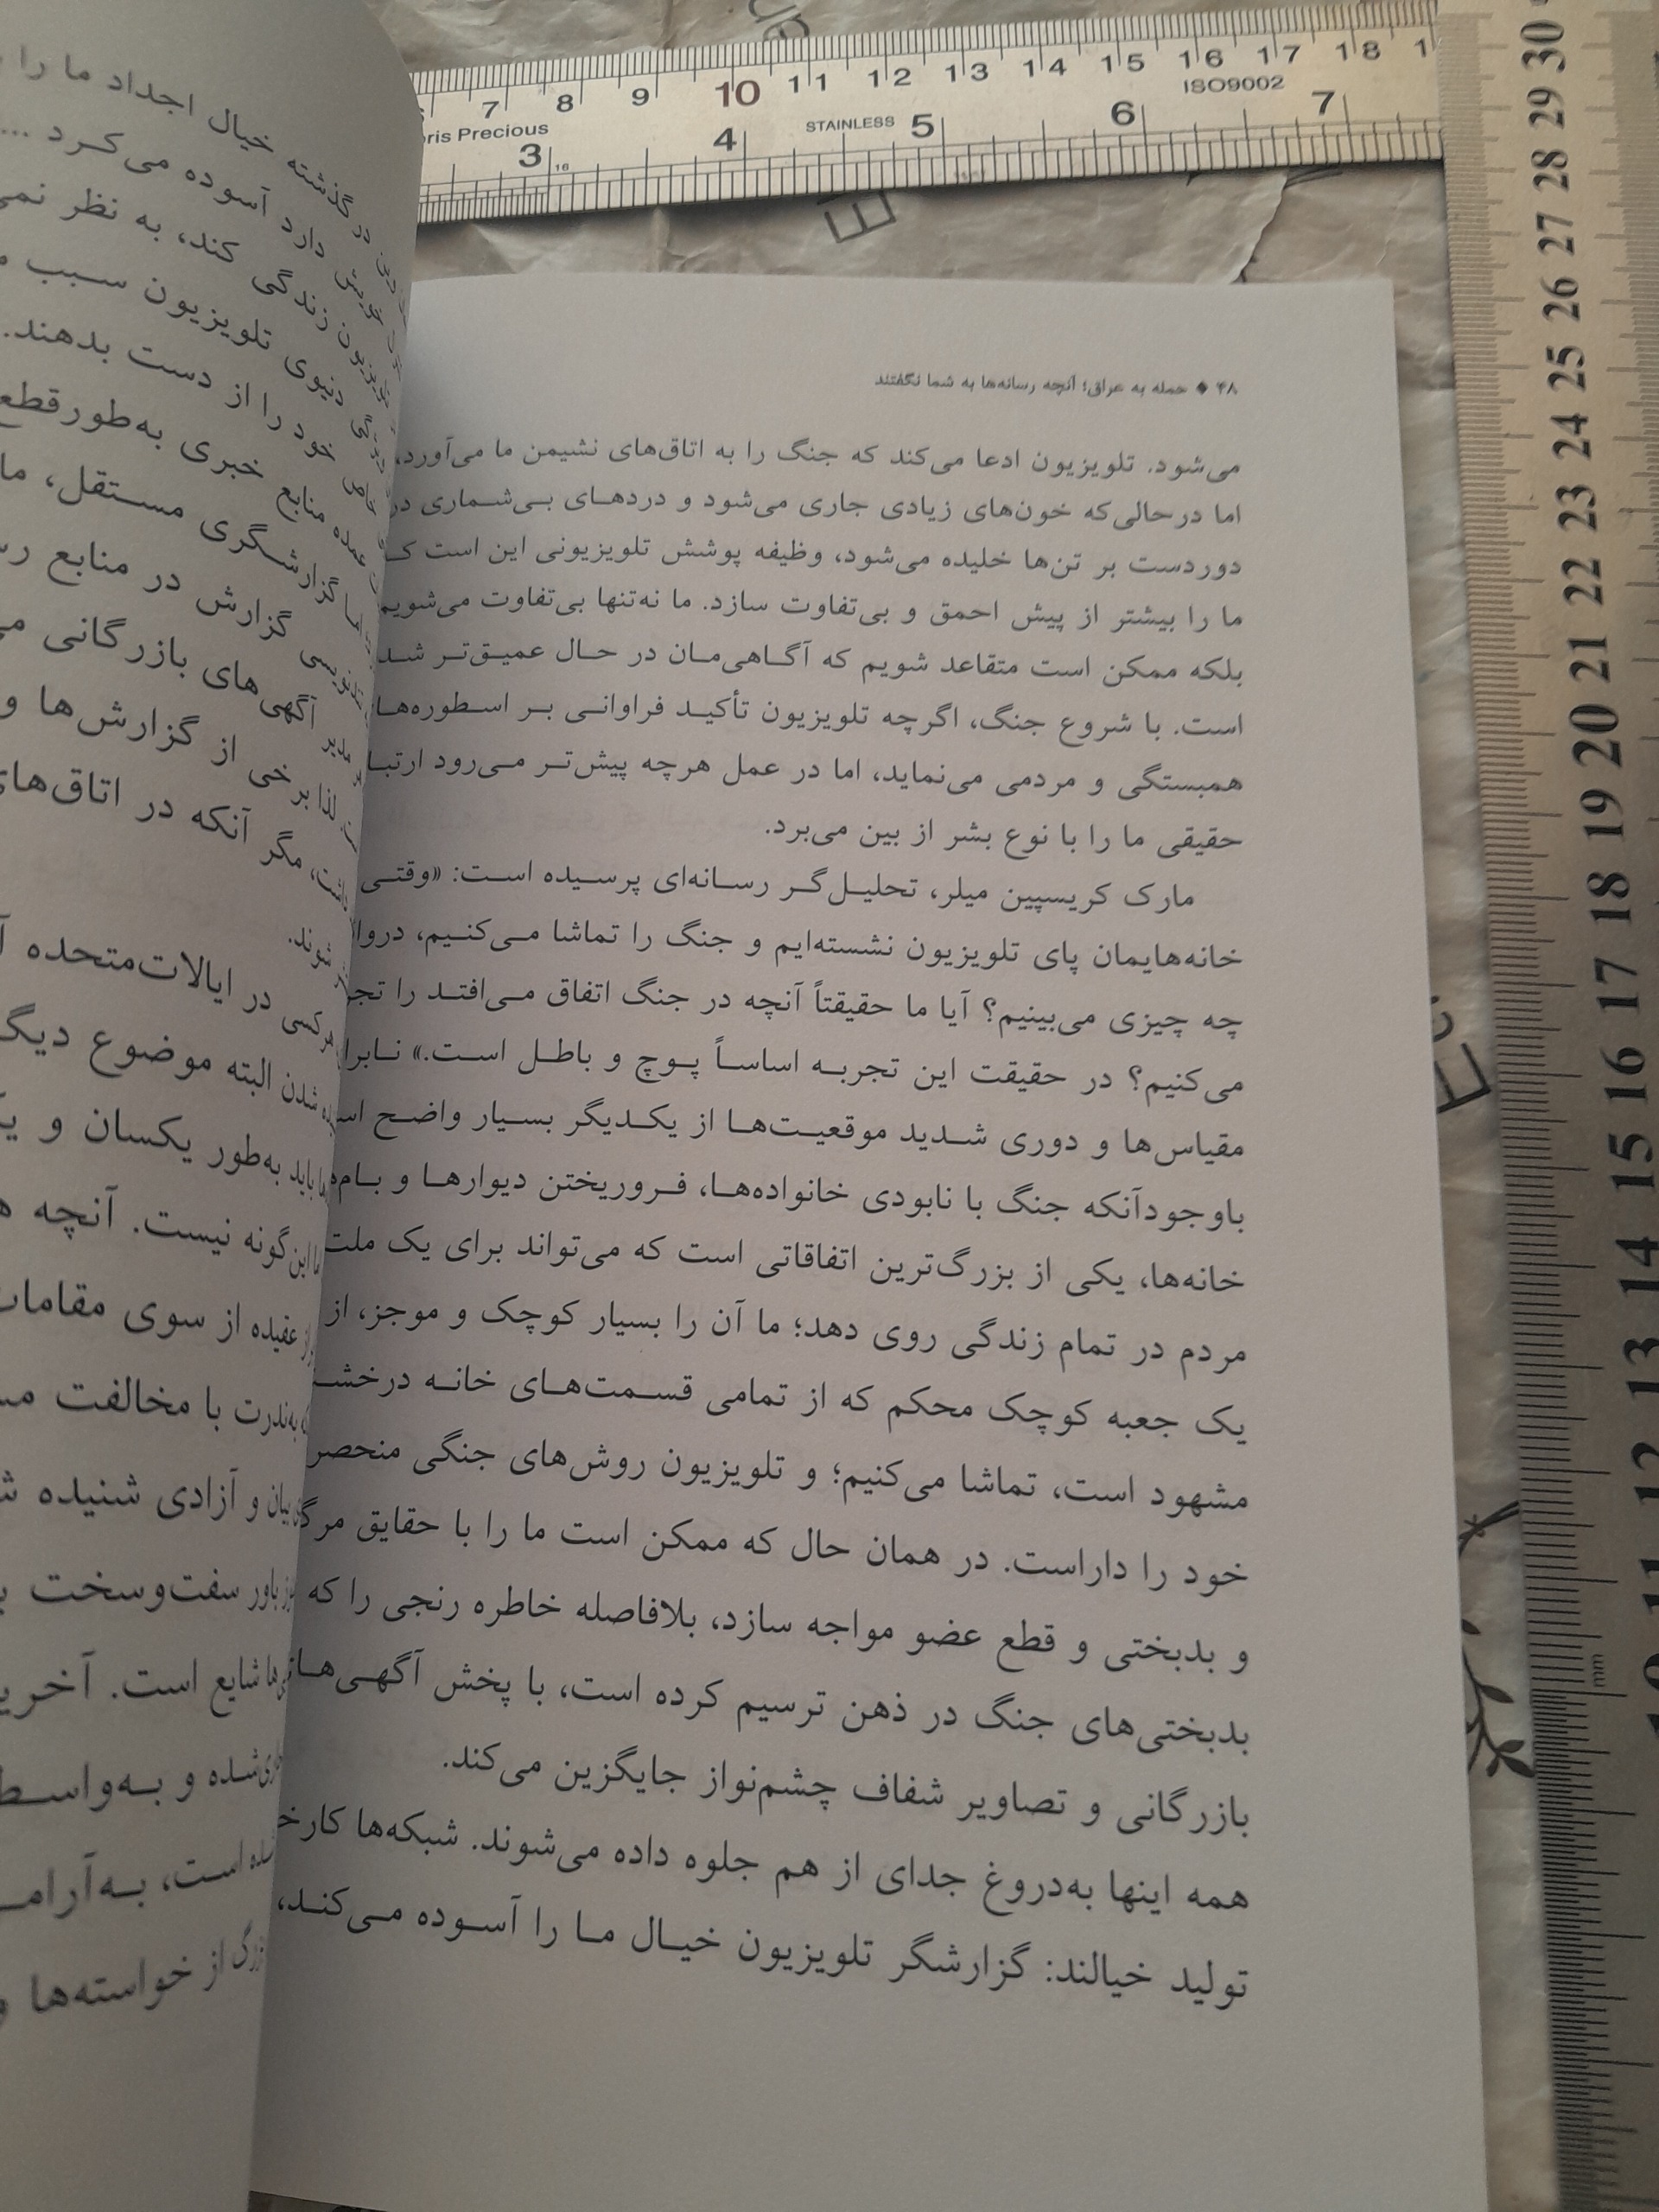 7 8 9 10 11 12 13 14 15 16 17 18
ris Precious STAINLESS ISO9002
3 4 5 6 7
16
30
29
28
27
26
25
24
23
22
21
20
19
18
17
16
15
14
13
12
11
mm
۴۸ ◆ حمله به عراق؛ آنچه رسانه‌ها به شما نگفتند
می‌شود. تلویزیون ادعا می‌کند که جنگ را به اتاق‌های نشیمن ما می‌آورد،
اما درحالی‌که خون‌های زیادی جاری می‌شود و دردهای بی‌شماری در
دوردست بر تن‌ها خلیده می‌شود، وظیفه پوشش تلویزیونی این است کـ
ما را بیشتر از پیش احمق و بی‌تفاوت سازد. ما نه‌تنها بی‌تفاوت می‌شویم
بلکه ممکن است متقاعد شویم که آگاهی‌مان در حال عمیق‌تر شد
است. با شروع جنگ، اگرچه تلویزیون تأکید فراوانی بر اسطوره‌ها
همبستگی و مردمی می‌نماید، اما در عمل هرچه پیش‌تر می‌رود ارتبا
حقیقی ما را با نوع بشر از بین می‌برد.
مارک کریسپین میلر، تحلیل‌گر رسانه‌ای پرسیده است: «وقتی
خانه‌هایمان پای تلویزیون نشسته‌ایم و جنگ را تماشا می‌کنیم، دروا
چه چیزی می‌بینیم؟ آیا ما حقیقتاً آنچه در جنگ اتفاق می‌افتد را تجر
می‌کنیم؟ در حقیقت این تجربه اساساً پوچ و باطل است.» نابرا
مقیاس‌ها و دوری شدید موقعیت‌ها از یکدیگر بسیار واضح اسـ
باوجودآنکه جنگ با نابودی خانواده‌ها، فروریختن دیوارها و بام‌
خانه‌ها، یکی از بزرگ‌ترین اتفاقاتی است که می‌تواند برای یک ملت
مردم در تمام زندگی روی دهد؛ ما آن را بسیار کوچک و موجز، از
یک جعبه کوچک محکم که از تمامی قسمت‌های خانه درخشـ
مشهود است، تماشا می‌کنیم؛ و تلویزیون روش‌های جنگی منحصر
خود را داراست. در همان حال که ممکن است ما را با حقایق مرگ
و بدبختی و قطع عضو مواجه سازد، بلافاصله خاطره رنجی را که
بدبختی‌های جنگ در ذهن ترسیم کرده است، با پخش آگهی‌هـا
بازرگانی و تصاویر شفاف چشم‌نواز جایگزین می‌کند.
همه اینها به‌دروغ جدای از هم جلوه داده می‌شوند. شبکه‌ها کارخـ
تولید خیالند: گزارشگر تلویزیون خیال ما را آسوده می‌کند،
در گذشته خیال اجداد ما را
دارد آسوده می‌کرد ...
زندگی کند، به نظر نمی
دنیوی تلویزیون سبب
خود را از دست بدهند.
عمده منابع خبری به‌طورقطع
گزارشگری مستقل، ما
گزارش در منابع رس
مدیر آگهی‌های بازرگانی
لذا برخی از گزارش‌ها و
مگر آنکه در اتاق‌ها
شوند.
هرکسی در ایالات‌متحده
شدن البته موضوع دیگ
باید به‌طور یکسان و یک
این‌گونه نیست. آنچه
عقیده از سوی مقامات
به‌ندرت با مخالفت
بیان و آزادی شنیده
باور سفت‌وسخت
شایع است. آخریـ
و به‌واسط
است، به‌آرامـ
از خواسته‌ها